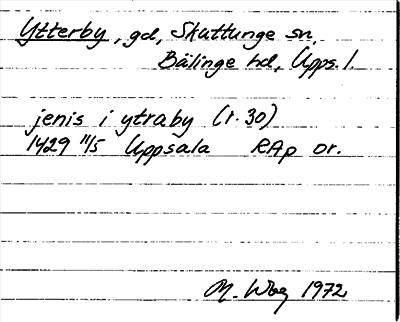 Ytterby, gd, Skuttunge sn,
Bälinge hd, Upps. l.
jenis i ytraby (r. 30)
1429 11/5 Uppsala RAp or.
M. Wbg 1972